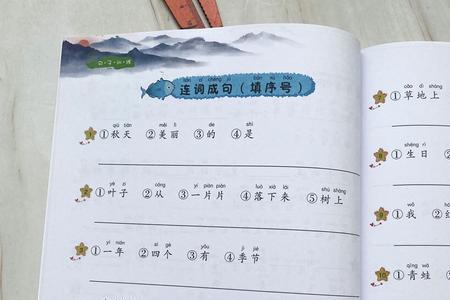 句·子·训·练
lián cí chéng jù tián xù hào
连词成句（填序号）
qiū tiān měi lì de shì
①秋天 ②美丽 ③的 ④是
yè zi cóng yí piàn piàn luò xià lái shù shàng
①叶子 ②从 ③一片片 ④落下来 ⑤树上
yì nián sì gè yǒu jì jié
①一年 ②四个 ③有 ④季节
cǎo dì shàng
①草地上
shēng rì
①生日
wǒ
①我
qīng wā
10 ①青蛙